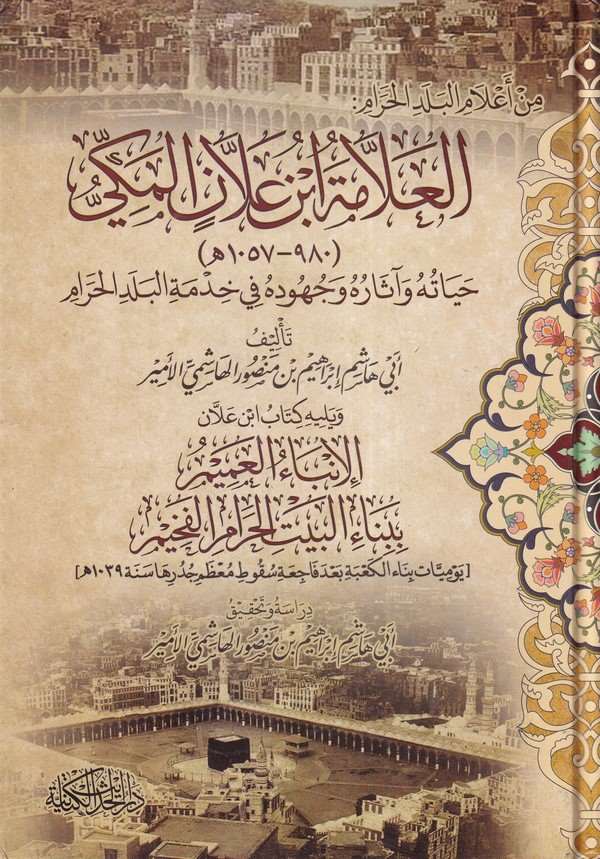 مِنْ أَعْلَامِ البَلَدِ الحَرَامِ:
العَلَّامَةُ ابْنُ عَلَّانَ المَكِّيُّ
(٩٨٠-١٠٥٧هـ)
حَيَاتُهُ وَآثَارُهُ وَجُهُودُهُ فِي خِدْمَةِ البَلَدِ الحَرَامِ
تَأْلِيفُ
أَبِي هَاشِمٍ إِبْرَاهِيمَ بْنِ مَنْصُورٍ الهَاشِمِيِّ الأَمِيرِ
وَيَلِيهِ كِتَابُ ابْنِ عَلَّان
الإِنْبَاءُ العَمِيمُ
بِبِنَاءِ البَيْتِ الحَرَامِ الفَخِيمِ
[يَوْمِيَّات بِنَاءِ الكَعْبَةِ بَعْدَ فَاجِعَةِ سُقُوطِ مُعْظَمِ جُدُرِهَا سَنَة ١٠٣٩هـ]
دِرَاسَةُ وَتَحْقِيقُ
أَبِي هَاشِمٍ إِبْرَاهِيمَ بْنِ مَنْصُورٍ الهَاشِمِيِّ الأَمِيرِ